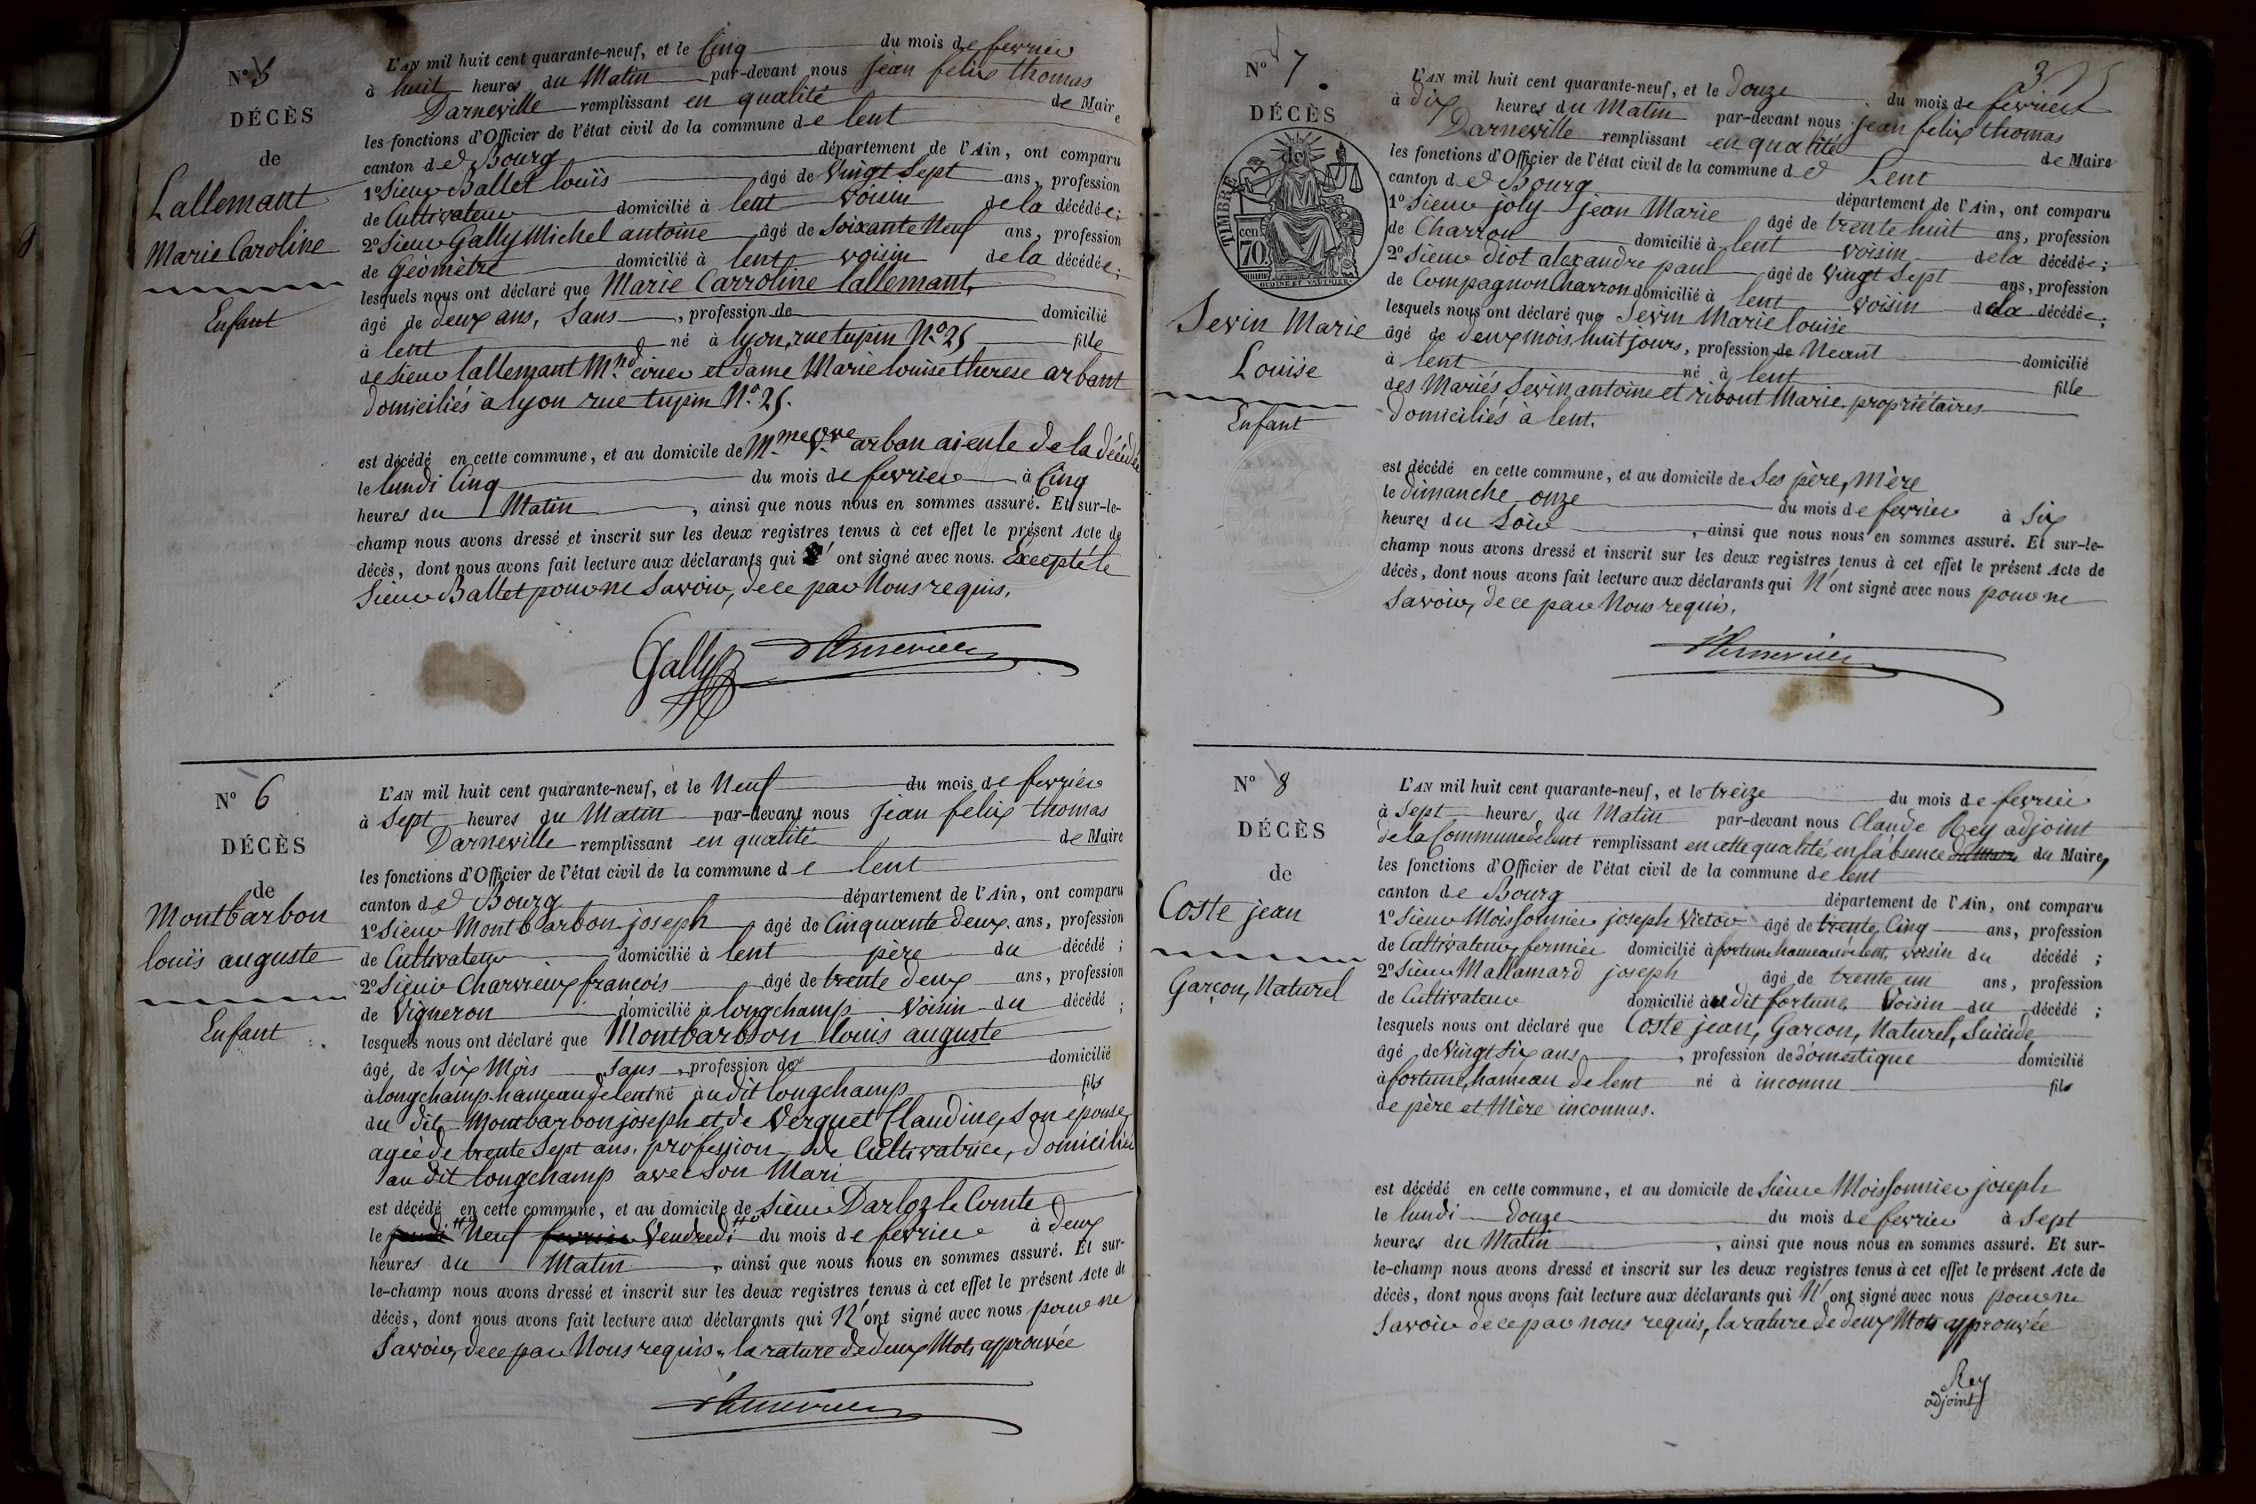 N° 5
DÉCÈS
de
Lallemant
Marie Caroline
Enfant
L'AN mil huit cent quarante-neuf, et le Cinq du mois de fevrier
à huit heures du Matin par-devant nous jean felix thomas
Darneville remplissant en qualité de Maire
les fonctions d'Officier de l'état civil de la commune de lent
canton de Bourg département de l'Ain, ont comparu
1° Sieur Ballet louïs âgé de Vingt Sept ans, profession
de Cultivateur domicilié à lent voisin de la décédée;
2° Sieur Gally Michel antoine âgé de Soixante Neuf ans, profession
de Géomètre domicilié à lent voisin de la décédée;
lesquels nous ont déclaré que Marie Carroline lallemant,
âgé de deux ans, Sans , profession de domicilié
à lent né à lyon, rue tupin N.° 25 fille
de Sieur lallemant M.nd cirier et dame Marie louise therese arbant
domiciliés à lyon rue tupin N.° 25.
est décédé en cette commune, et au domicile de M.me V.ve arban aieule de la décédée
le lundi Cinq du mois de fevrier à Cinq
heures du Matin , ainsi que nous nous en sommes assuré. Et sur-le-
champ nous avons dressé et inscrit sur les deux registres tenus à cet effet le présent Acte de
décès, dont nous avons fait lecture aux déclarants qui ont signé avec nous. Excepté le
Sieur Ballet pour ne Savoir, de ce par Nous requis.
Gally d'Arnevielle
N° 6
DÉCÈS
de
Montbarbon
louïs auguste
Enfant
L'AN mil huit cent quarante-neuf, et le Neuf du mois de fevrier
à Sept heures du Matin par-devant nous jean felix thomas
Darneville remplissant en qualité de Maire
les fonctions d'Officier de l'état civil de la commune de lent
canton de Bourg département de l'Ain, ont comparu
1° Sieur Montbarbon joseph âgé de Cinquante deux ans, profession
de Cultivateur domicilié à lent père du décédé;
2° Sieur Charvieux françois âgé de trente deux ans, profession
de Vigneron domicilié à longchamp Voisin du décédé;
lesquels nous ont déclaré que Montbarbon louis auguste
âgé de Six Mois Sans , profession de domicilié
à longchamp hameau de lent né audit longchamp fils
du dit Montbarbon joseph et de Verguet Claudine, Son épouse,
agée de trente Sept ans, profession de Cultivatrice, domiciliée
au dit longchamp avec Son Mari
est décédé en cette commune, et au domicile de Sieur Darloz le Comte
le jeudi Neuf fevrier Vendredi du mois de fevrier à deux
heures du Matin , ainsi que nous nous en sommes assuré. Et sur-
le-champ nous avons dressé et inscrit sur les deux registres tenus à cet effet le présent Acte de
décès, dont nous avons fait lecture aux déclarants qui N'ont signé avec nous pour ne
Savoir, de ce par Nous requis. la rature de deux Mots approuvée
d'Arnevielle
3
N° 7.
DÉCÈS
de
TIMBRE
70 cen
OUDINÉ ET VAUTHIER
Sevin Marie
Louïse
Enfant
L'AN mil huit cent quarante-neuf, et le douze du mois de fevrier
à dix heures du Matin par-devant nous jean felix thomas
Darneville remplissant en qualité de Maire
les fonctions d'Officier de l'état civil de la commune de Lent
canton de Bourg département de l'Ain, ont comparu
1° Sieur joly jean Marie âgé de trente huit ans, profession
de Charron domicilié à lent voisin de la décédée;
2° Sieur diot alexandre paul âgé de Vingt Sept ans, profession
de Compagnon Charron domicilié à lent voisin de la décédée;
lesquels nous ont déclaré que Sevin Marie louise
âgé de deux mois, huit jours, profession de Neant domicilié
à lent né à lent fille
des Mariés Sevin antoine et ribout Marie, propriétaires
domiciliés à lent.
est décédé en cette commune, et au domicile de Ses père, Mère
le dimanche onze du mois de fevrier à Six
heures du Soir , ainsi que nous nous en sommes assuré. Et sur-le-
champ nous avons dressé et inscrit sur les deux registres tenus à cet effet le présent Acte de
décès, dont nous avons fait lecture aux déclarants qui N'ont signé avec nous pour ne
Savoir, de ce par Nous requis.
d'Arnevielle
N° 8
DÉCÈS
de
Coste jean
Garçon, Naturel
L'AN mil huit cent quarante-neuf, et le treize du mois de fevrier
à Sept heures du Matin par-devant nous Claude Rey adjoint
de la Commune de lent remplissant en cette qualité, en l'absence du Maire,
les fonctions d'Officier de l'état civil de la commune de lent
canton de Bourg département de l'Ain, ont comparu
1° Sieur Moissonnier joseph Victor âgé de trente Cinq ans, profession
de Cultivateur fermier domicilié à fortune hameau de lent, voisin du décédé;
2° Sieur Mallamard joseph âgé de trente un ans, profession
de Cultivateur domicilié au dit fortune, Voisin du décédé;
lesquels nous ont déclaré que Coste jean, Garçon, Naturel, Suicide
âgé de Vingt Six ans , profession de domestique domicilié
à fortune, hameau de lent né à inconnu fils
de père et Mère inconnus.
est décédé en cette commune, et au domicile de Sieur Moissonnier joseph
le lundi douze du mois de fevrier à Sept
heures du Matin , ainsi que nous nous en sommes assuré. Et sur-
le-champ nous avons dressé et inscrit sur les deux registres tenus à cet effet le présent Acte de
décès, dont nous avons fait lecture aux déclarants qui N'ont signé avec nous pour ne
Savoir de ce par nous requis, la rature de deux Mots approuvée
Rey
adjoint